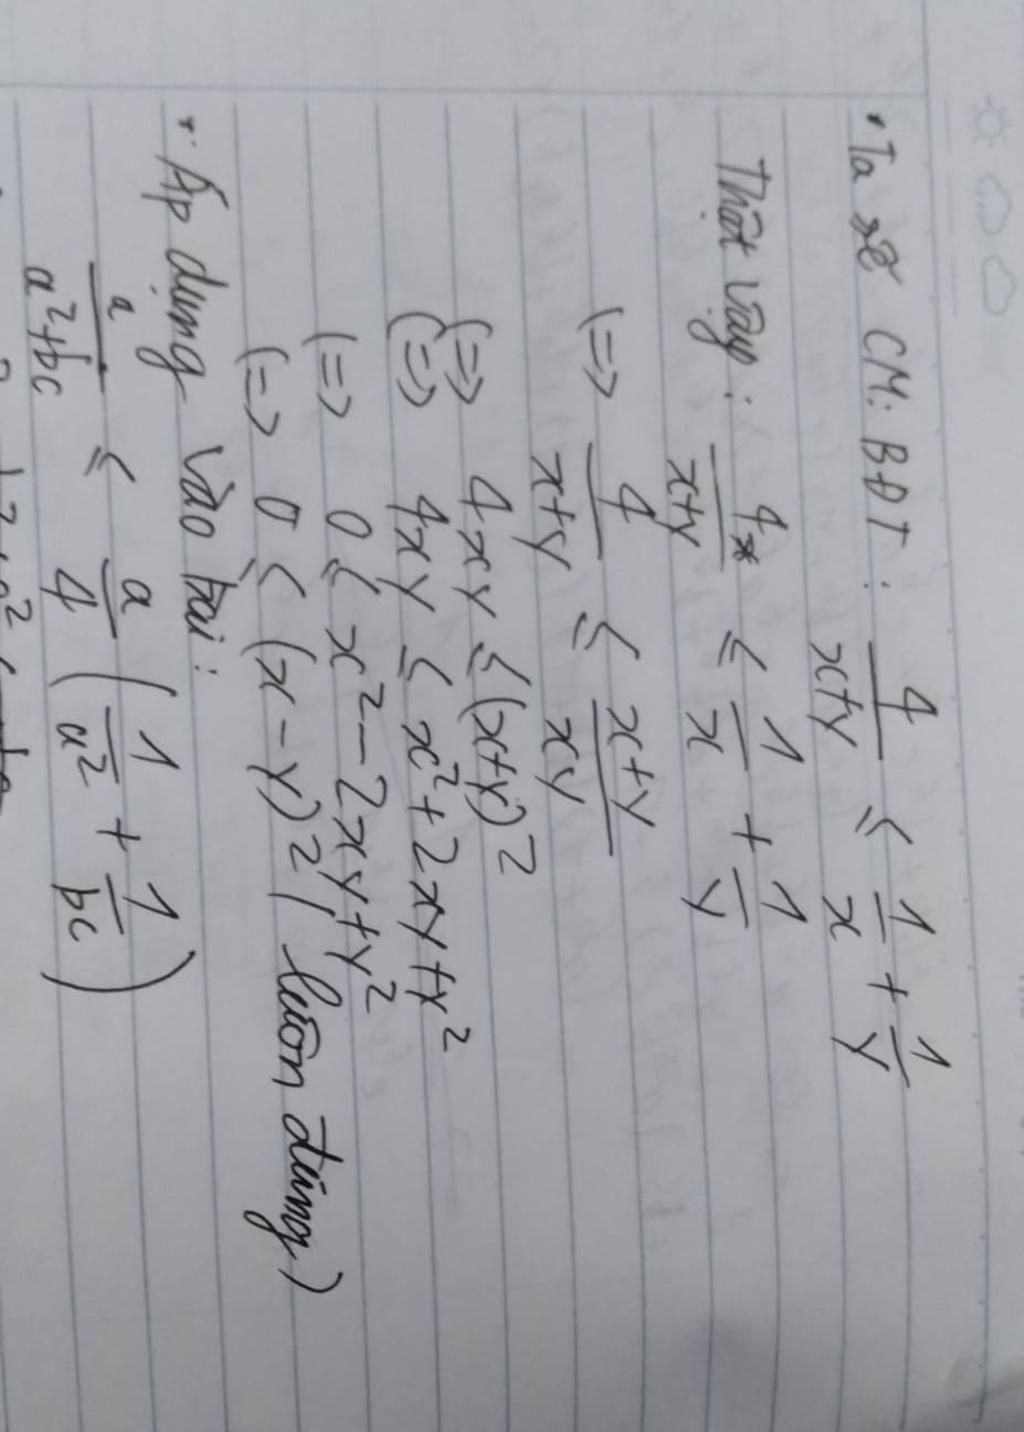 • Ta sẽ CM: BĐT: 4/(x+y) ≤ 1/x + 1/y
Thật vậy: 4/(x+y) ≤ 1/x + 1/y
(=> 4/(x+y) ≤ (x+y)/(xy)
(=> 4xy ≤ (x+y)²
(=> 4xy ≤ x² + 2xy + y²
(=> 0 ≤ x² - 2xy + y²
(=> 0 ≤ (x - y)² (luôn đúng)
• Áp dụng vào bài:
a/(a²+bc) ≤ a/4 (1/a² + 1/bc)